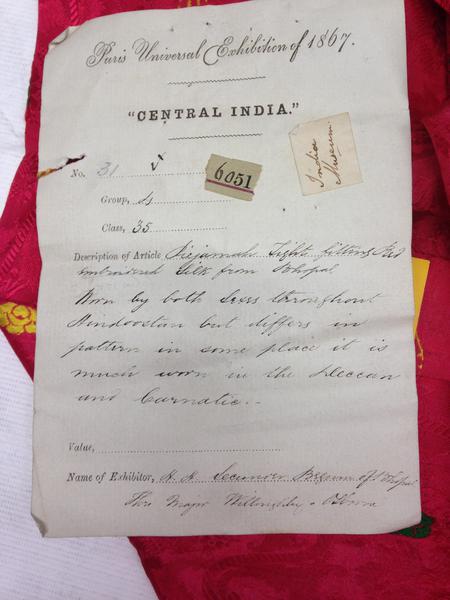 Paris Universal Exhibition of 1867.
"CENTRAL INDIA."
No. 31
6051
India
Museum.
Group, 4
Class, 35
Description of Article Piejamah Tight fitting Red
embroidered Silk from Bhopal
Worn by both Sexes throughout
Hindoostan but differs in
pattern in some place it is
much worn in the Deccan
and Carnatic.-
Value,
Name of Exhibitor, H. H. Secunder Begum of Bhopal
Thro Major Willoughby - Osborne